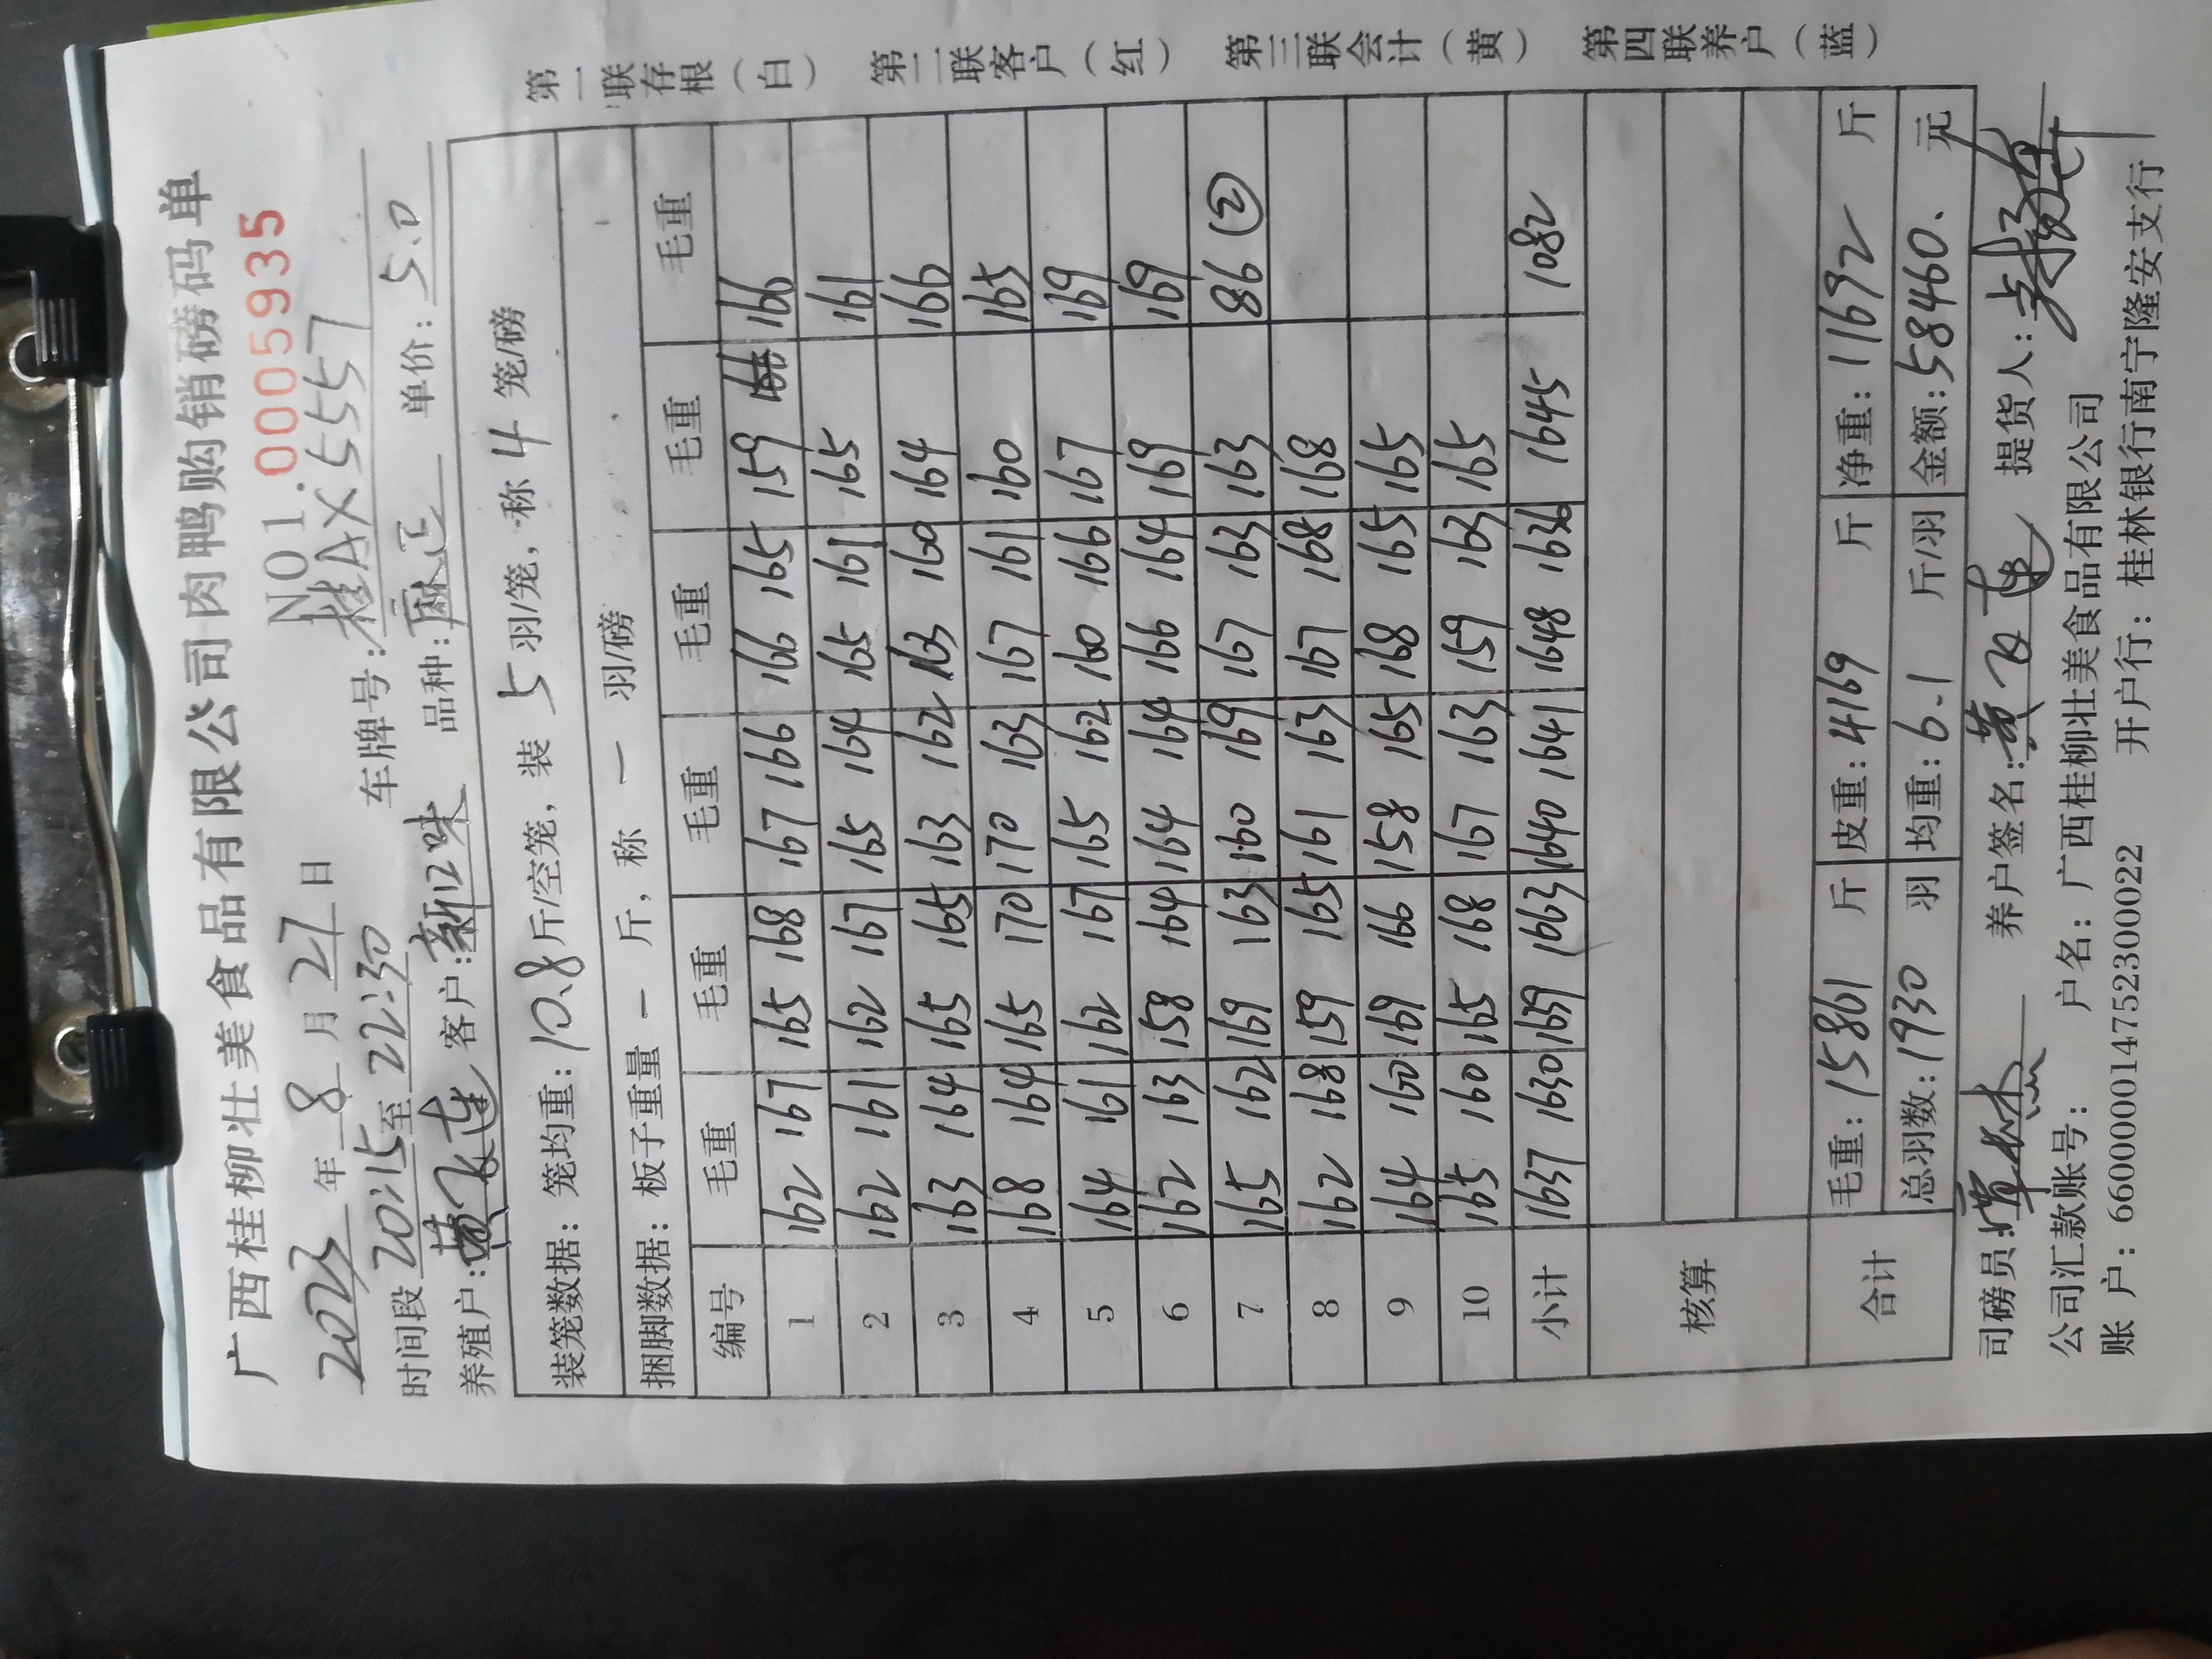 广西桂柳壮美食品有限公司肉鸭购销磅码单
NO1.0005935
2023年8月27日 车牌号:桂AX5557
时间段20:15至22:30 品种:麻正 单价:5.0
养殖户:黄飞连 客户:新口味
装笼数据:笼均重:10.8斤/空笼,装5羽/笼,称4笼/磅
捆脚数据:板子重量 — 斤,称 — 羽/磅
编号 毛重 毛重 毛重 毛重 毛重 毛重
1 162 167 165 168 167 166 166 165 159 166
2 162 161 162 167 165 164 165 161 165 161
3 163 164 165 165 163 162 163 160 164 166
4 168 164 165 170 170 163 167 161 160 165
5 164 161 162 167 165 162 160 166 167 169
6 162 163 158 164 164 164 166 164 169 169
7 165 162 169 163 160 169 167 163 163 86②
8 162 168 159 165 161 163 167 168 168
9 164 160 169 166 158 165 168 165 165
10 165 160 165 168 167 163 159 163 165
小计 1637 1630 1639 1663 1640 1641 1648 1636 1645 1082
核算
合计
毛重:15861斤 皮重:4169斤 净重:11692斤
总羽数:1930羽 均重:6.1斤/羽 金额:58460.元
司磅员:覃杰 养户签名:黄飞连 提货人:
公司汇款账号: 户名:广西桂柳壮美食品有限公司
账户:660000014752300022 开户行:桂林银行南宁隆安支行
第一联存根(白)
第二联客户(红)
第三联会计(黄)
第四联养户(蓝)